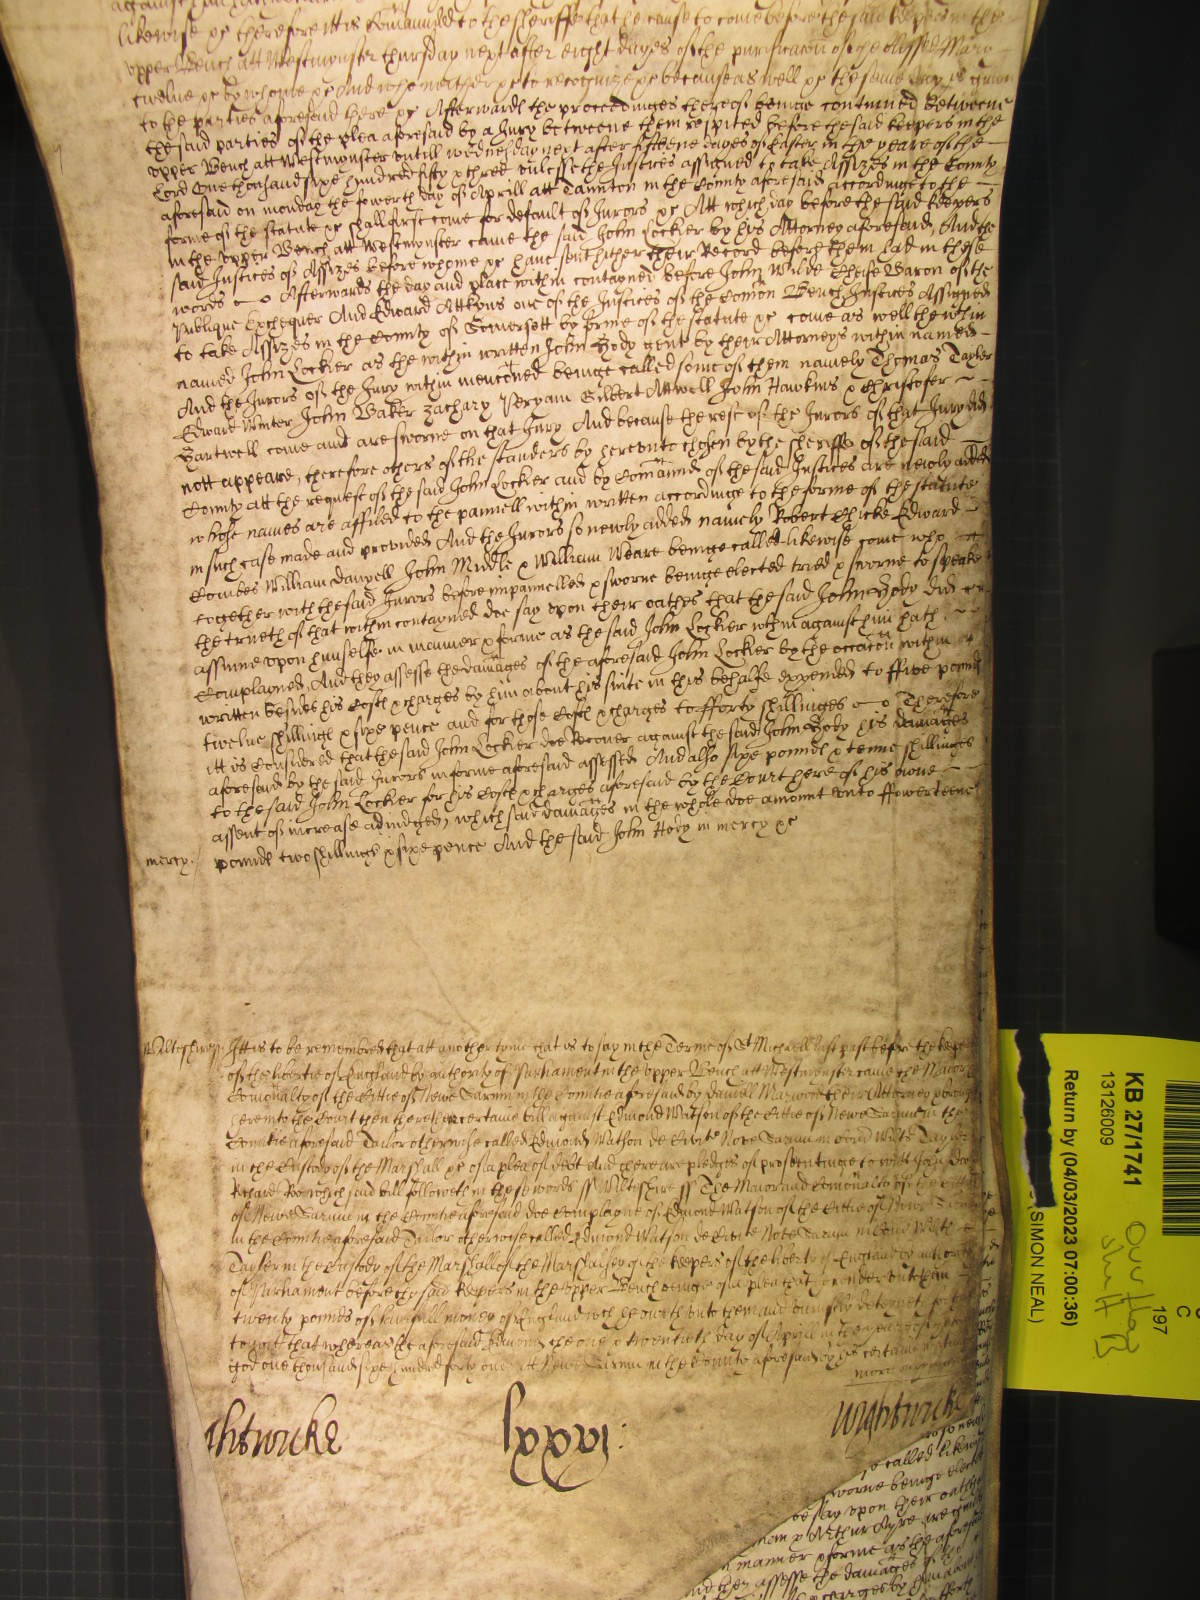 likewise &c therefore itt is Comaunded to the Sheriffe that he cause to come before the said Keepers in the
upper Bench att Westmynster thursday next after eight dayes of the purificacon of the blessed Mary
twelve &c by whome &c And who neither &c to recognize &c because as well &c the same day is given
to the parties aforesaid there &c Afterwards the proceedinges thereof beinge continued Betweene
the said parties of the plea aforesaid by a Jury betweene them respited before the said Keepers in the
upper Bench att Westmynster untill wednesday next after fifteene dayes of Easter in the yeare of the
Lord One thousand sixe hundred fifty & three unlesse the Justices assigned to take Assizes in the County
aforesaid on monday the fowerth day of Aprill att Taunton in the County aforesaid accordinge to the
forme of the statute &c shall first come for default of Jurors &c Att which day before the said Keepers
in the upper Bench att Westmynster came the said John Locker by his Attorney aforesaid, And the
said Justices of Assizes before whome &c have sent hither their Record before them had in these
words Afterwards the day and place within contayned before John Wilde Cheife Baron of the
Publique Exchequer And Edward Attkyns one of the Justices of the Comon Bench Justices Assigned
to take Assizes in the County of Somersett by forme of the statute &c come as well the within
named John Locker as the within written John Hody gent by their Attorneys within named
And the Jurors of the Jury within menconed beinge called some of them namely Thomas Tayler
Edward Winter John Baker Zachary Veryam Gilbert Attwell John Hawkins & Christofer
Hartwell come and are sworne on that Jury And because the rest of the Jurors of that Jury did
nott appeare, therefore others of the standers by hereunto chosen by the Sheriffe of the said
County att the request of the said John Locker and by Comaund of the said Justices are newly added
whose names are affiled to the pannell within written accordinge to the forme of the statute
in such case made and provided And the Jurors so newly added namely Robert Chicke Edward
Combes William Danyell John Middle & William Weare beinge called likewise come who
together with the said Jurors before impannelled & sworne beinge elected tried & sworne to speake
the trueth of that within contayned doe say upon their oathes that the said John Hody did
assume upon himselfe in manner & forme as the said John Locker within against him hath
Complayned, And they assesse the damages of the aforesaid John Locker by the occacon within
written besides his Costs & charges by him about his suite in this behalfe expended to ffive pounds
twelve shillings & sixe pence and for those Costs & charges to fforty shillinges Therefore
itt is Considered that the said John Locker doe Recover against the said John Hody his damages
aforesaid by the said Jurors in forme aforesaid assessed And also sixe pounds & tenne shillinges
to the said John Locker for his Costs & charges aforesaid by the Court here of his owne
assent of increase adiudged, which said damages in the whole doe amount unto ffowerteene
mercy. pounds two shillings & sixe pence And the said John Hody in mercy &c
Wilteshire Itt is to be remembred that att another tyme that is to say in the Terme of St Michaell last past before the keepers
of the libertie of England by authority of Parliament in the upper Bench att Westmynster came the Maior
Comonalty of the Cittie of Newe Sarum in the Countie aforesaid by Daniell their Attorney
here into the Court then there a certaine bill against Edmond Watson of the Cittie of Newe Sarum in the
Countie aforesaid Tailor otherwise called Edmond Watson de Civit Nove Sarum in Com Wilts Taylor
in the Custody of the Marshall &c of a plea of debt And there are pledges of prosecutinge to witt John Doe
Richard Roe which said bill followeth in these words ss Wilteshire ss The Maior and Comonalty of the Cittie
of Newe Sarum in the Countie aforesaid doe Complayne of Edmond Watson of the Cittie of Newe Sarum
in the Countie aforesaid Tailor otherwise called Edmond Watson de Civit Nove Sarum in Com Wilts
Tayler in the Custody of the Marshall of the Marshalsey of the Keepers of the liberty of England by authority
of Parliament before the said Keepers in the upper Bench beinge of a plea that he render unto them
twenty pounds of lawfull money of England which he oweth unto them and uniustly deteynes for that
to witt that whereas the aforesaid Edmond the one & twentieth day of Aprill in the yeare of
god one thousand sixe hundred forty one att Newe Sarum in the County aforesaid by his certaine
lxxvj:
Wightwicke
called likewise
sworne beinge elected
say upon their oathes
& Arthur Ayre
manner & forme as the aforesaid
and they assesse the damages
charges by him about
KB 27/1741
13126009
Return by (04/03/2023 07:00:36)
(SIMON NEAL)
197
C